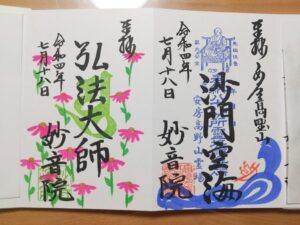 奉拝
安房高野山
沙門空海
令和四年
七月十八日
妙音院
奉拝
弘法大師
令和四年
七月十八日
妙音院